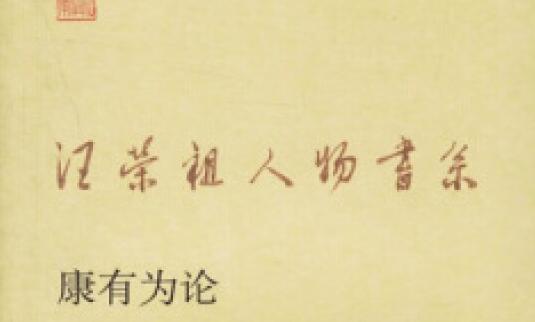 汪荣祖人物书系
康有为论